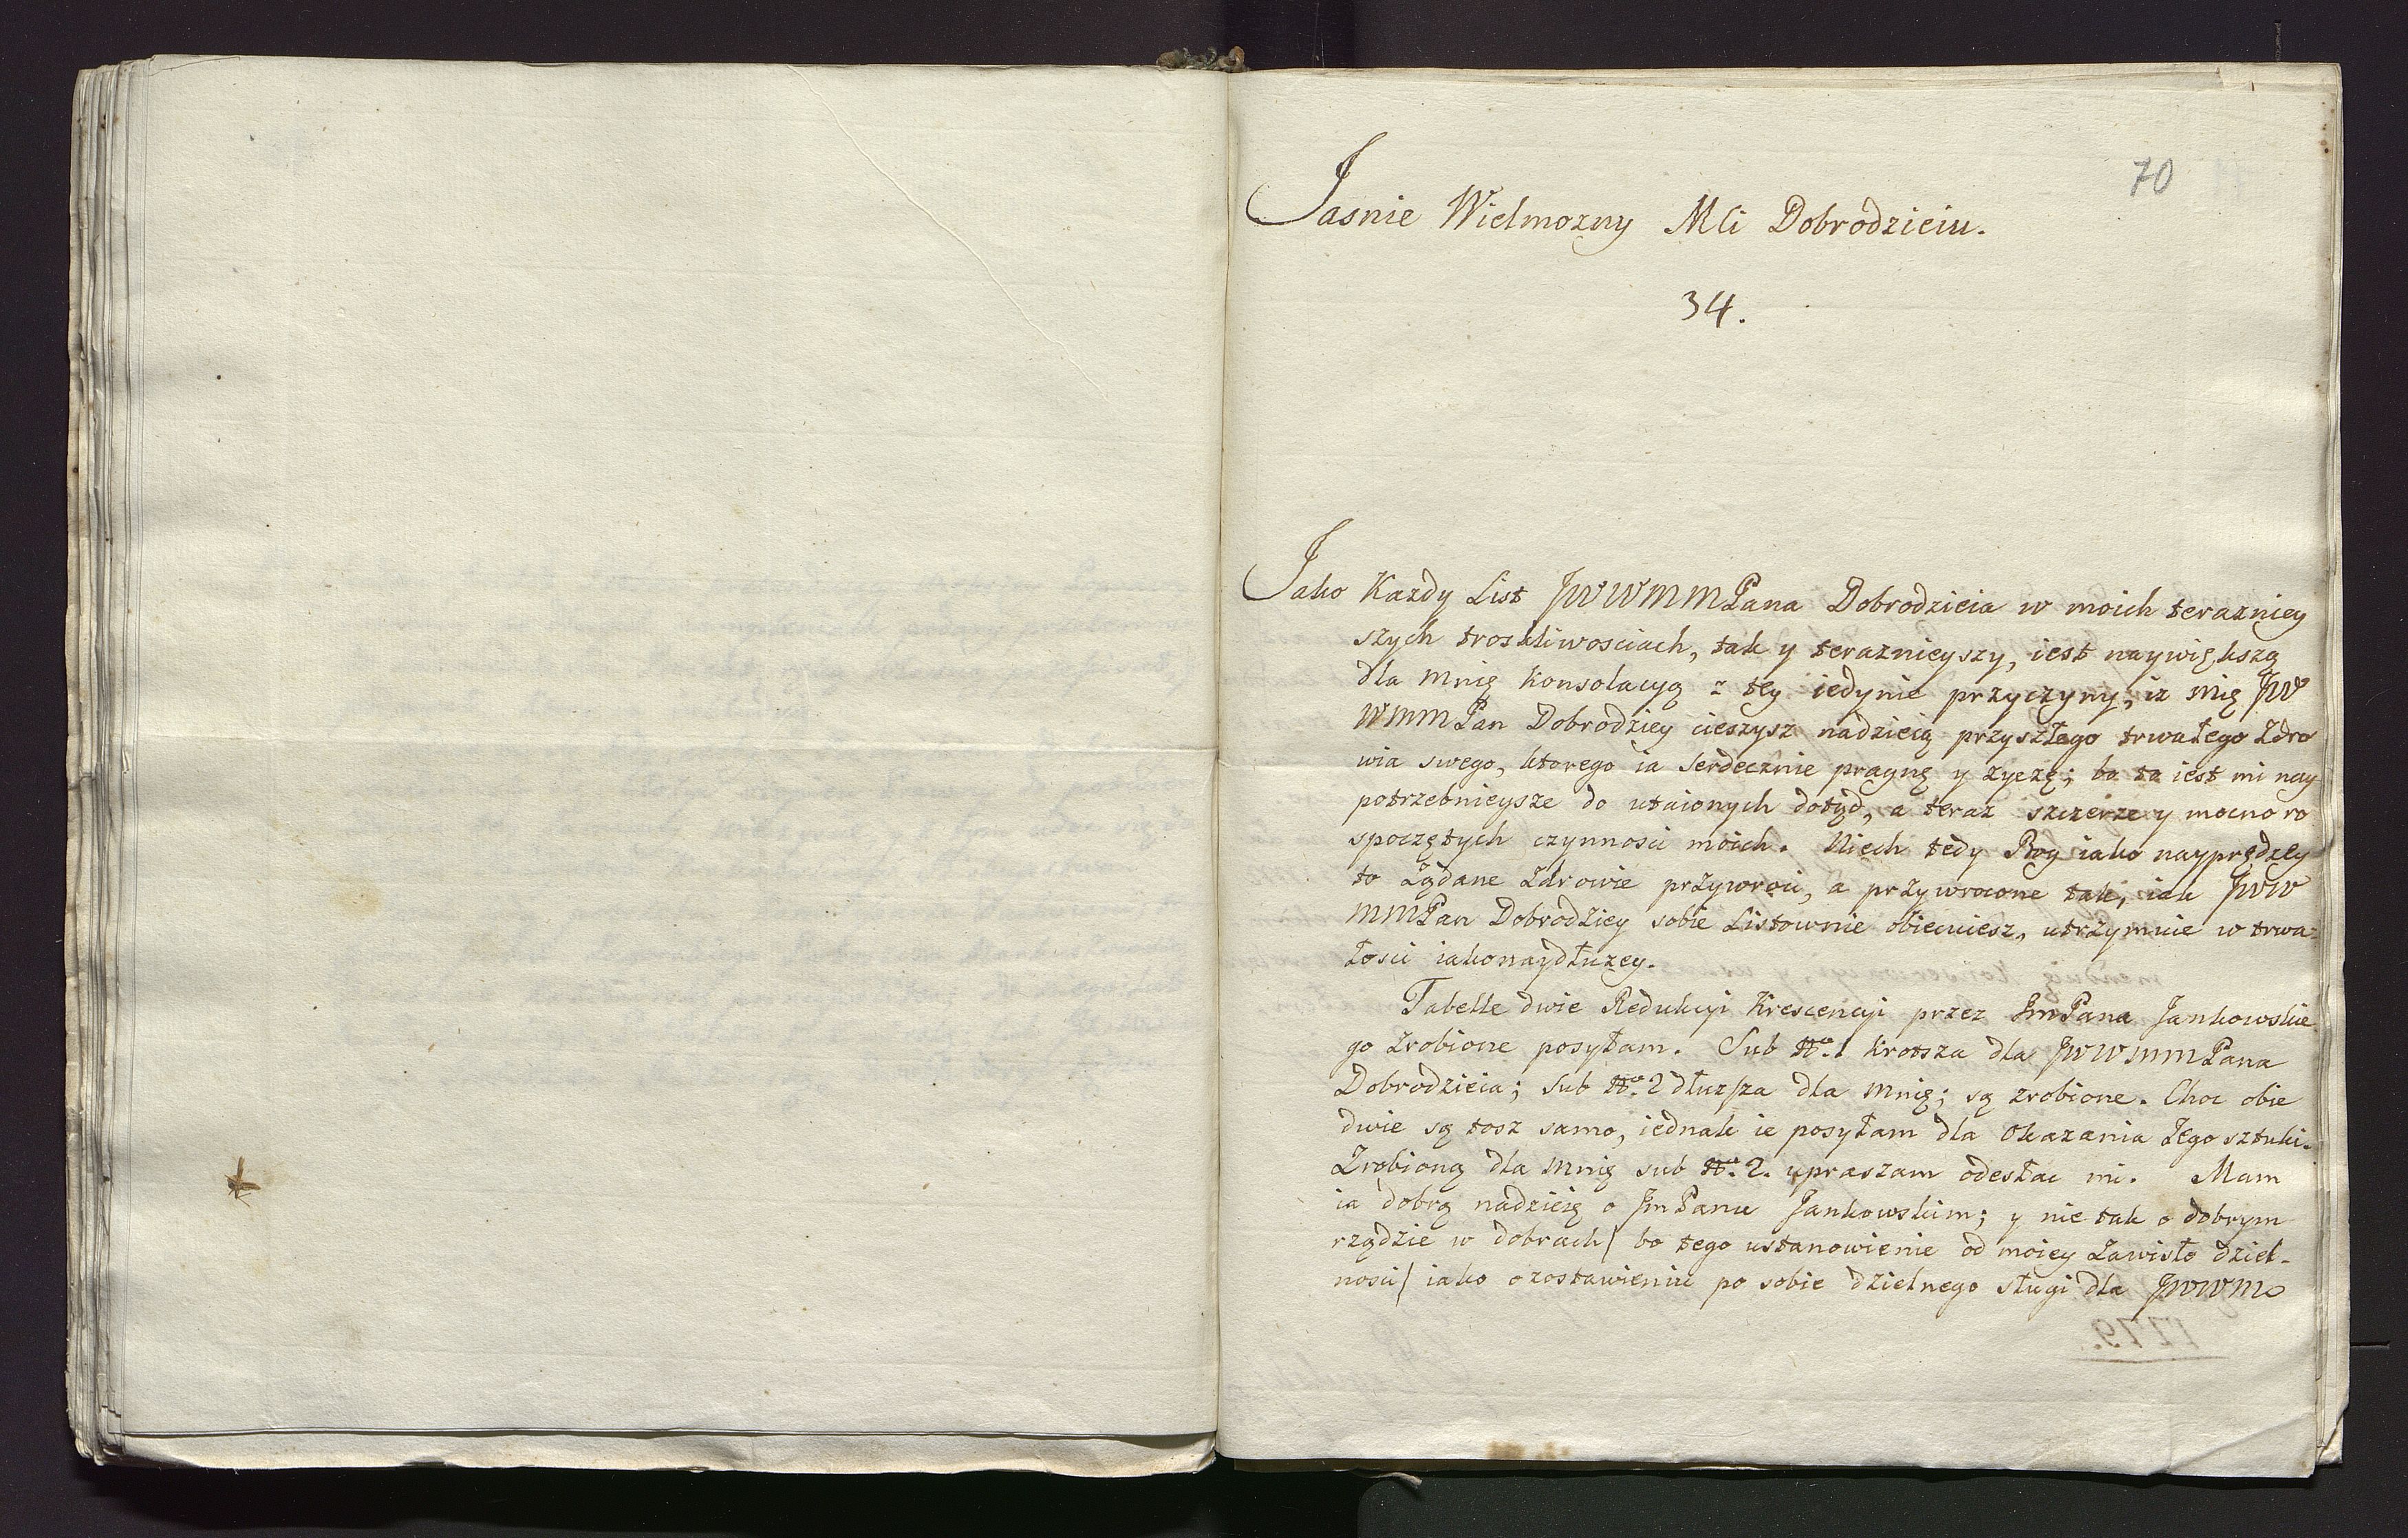 70
Jasnie Wielmozny Mli Dobrodzieiu.
34.
Jako Kazdy List JWWMMPana Dobrodzieia w moich terazniey
szych troskliwosciach, tak y teraznieyszy, iest naywiększą
dla mnię konsolacyą z tey iedynie przyczyny, iz mię JW
WMMPan Dobrodziey cieszysz nadzieią przyszłego trwałego Zdro
wia swego, ktorego ia serdecznie pragnę y zyczę; bo to iest mi nay
potrzebnieysze do utaionych dotąd, a teraz szczerze y mocno ro
spoczętych czynnosci moich. Niech tedy Bog iako nayprędzey
to Ządane Zdrowie przywroci, a przywrocone tak, iak JWW
MMPan Dobrodziey sobie Listownie obiecuiesz, utrzymuie w trwa-
łosci iakonaydłuzey.
Tabelle dwie Redukcyi Krescencyi przez JmPana Jankowskie
go zrobione posyłam. Sub No. 1 krotsza dla JWWMMPana
Dobrodzieia; sub No. 2 dłuzsza dla mnię; są zrobione. Choc obie
dwie są tosz samo, iednak ie posyłam dla okazania Jego sztuki.
Zrobioną dla mnię sub No. 2. upraszam odesłac mi. Mam
ia dobrą nadzieię o JmPanu Jankowskim; y nie tak o dobrym
rządzie w dobrach/ bo tego ustanowienie od moiey Zawisło dziel-
nosci/ iako o zostawieniu po sobie dzielnego sługi dla JWWM